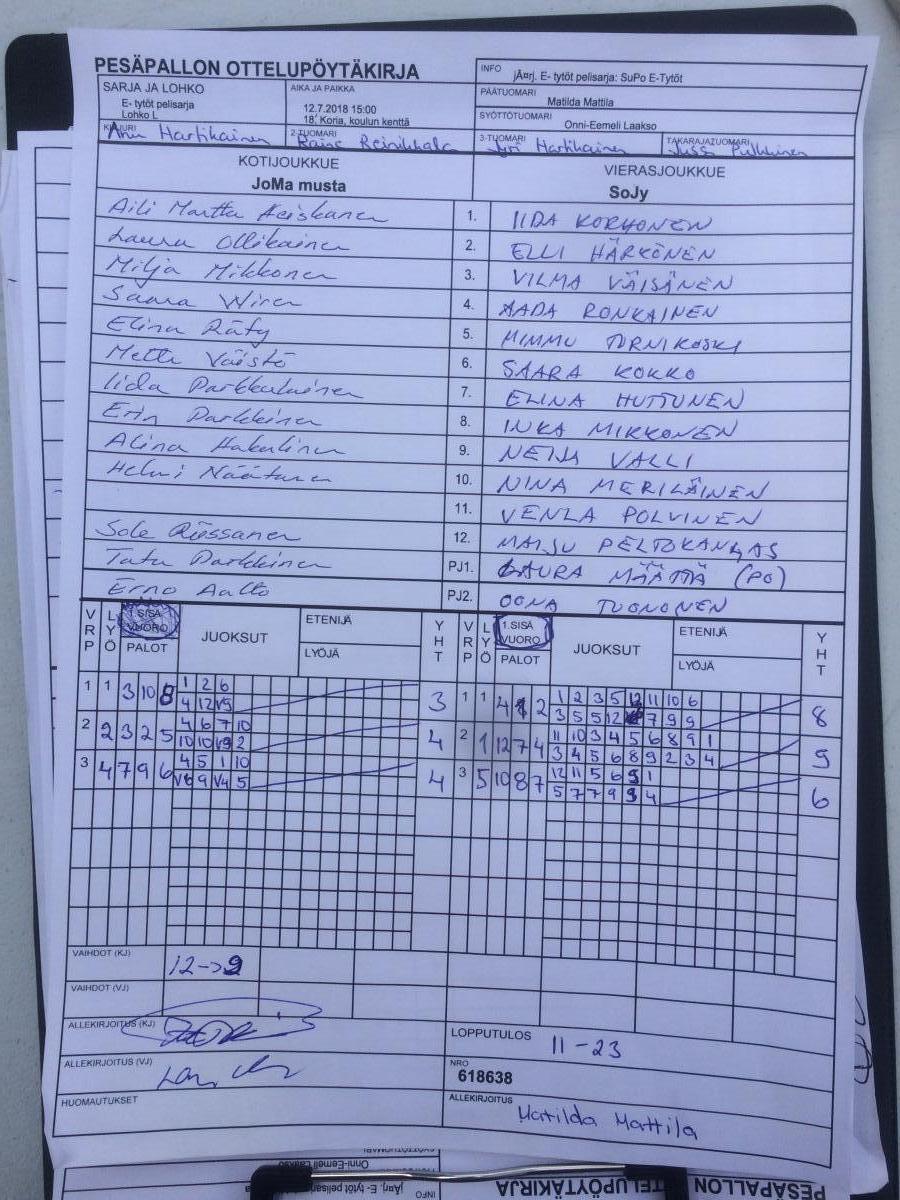 PESÄPALLON OTTELUPÖYTÄKIRJA
INFO jÃ¤rj. E- tytöt pelisarja: SuPo E-Tytöt
SARJA JA LOHKO
E- tytöt pelisarja
Lohko L
AIKA JA PAIKKA
12.7.2018 15:00
18, Koria, koulun kenttä
PÄÄTUOMARI
Matilda Mattila
SYÖTTÖTUOMARI
Onni-Eemeli Laakso
KIRJURI Anu Hartikainen
2-TUOMARI
3-TUOMARI Jyri Hartikainen
TAKARAJATUOMARI Jussi Pulkkinen
KOTIJOUKKUE
JoMa musta
VIERASJOUKKUE
SoJy
Aili Martta Heiskanen 1. IIDA KORHONEN
Laura Ollikainen 2. ELLI HÄRKÖNEN
Milja Mikkonen 3. VILMA VÄISÄNEN
Saara Wiren 4. AADA RONKAINEN
Elina Räty 5. MIMMU TURNIKOSKI
Metta Väistö 6. SAARA KOKKO
Iida Parkkulainen 7. ELINA HUTTUNEN
Erin Parkkinen 8. INKA MIKKONEN
Alina Hakulinen 9. NEIJA VALLI
Helmi Näätänen 10. NINA MERILÄINEN
11. VENLA POLVINEN
Sole 12. MAIJU PELTOKANGAS
Tatu Parkkinen PJ1. LAURA MÄÄTTÄ (PO)
Erno Aalto PJ2. OONA TUONONEN
VRP LYÖ 1.SISÄ VUORO PALOT JUOKSUT ETENIJÄ LYÖJÄ YHT
VRP LYÖ 1.SISÄ VUORO PALOT JUOKSUT ETENIJÄ LYÖJÄ YHT
1 1 3 10 8 1 2 6 3
4 12 V9
1 1 4 2 1 2 3 5 12 11 10 6 8
3 5 5 12 7 9 9
2 2 3 2 5 4 6 7 10 4
10 10 V9 2
2 1 12 7 4 11 10 3 4 5 6 8 9 1 9
3 4 5 6 8 9 2 3 4
3 4 7 9 6 4 5 1 10 4
V6 9 V4 5
3 5 10 8 7 12 11 5 6 9 1 6
5 7 7 9 9 4
VAIHDOT (KJ) 12->9
VAIHDOT (VJ)
ALLEKIRJOITUS (KJ)
LOPPUTULOS 11-23
ALLEKIRJOITUS (VJ)
NRO
618638
HUOMAUTUKSET
ALLEKIRJOITUS Matilda Mattila
PESÄPALLON OTTELUPÖYTÄKIRJA
INFO jÃ¤rj. E- tytöt pelisarja
Onni-Eemeli Laakso
SYÖTTÖTUOMARI